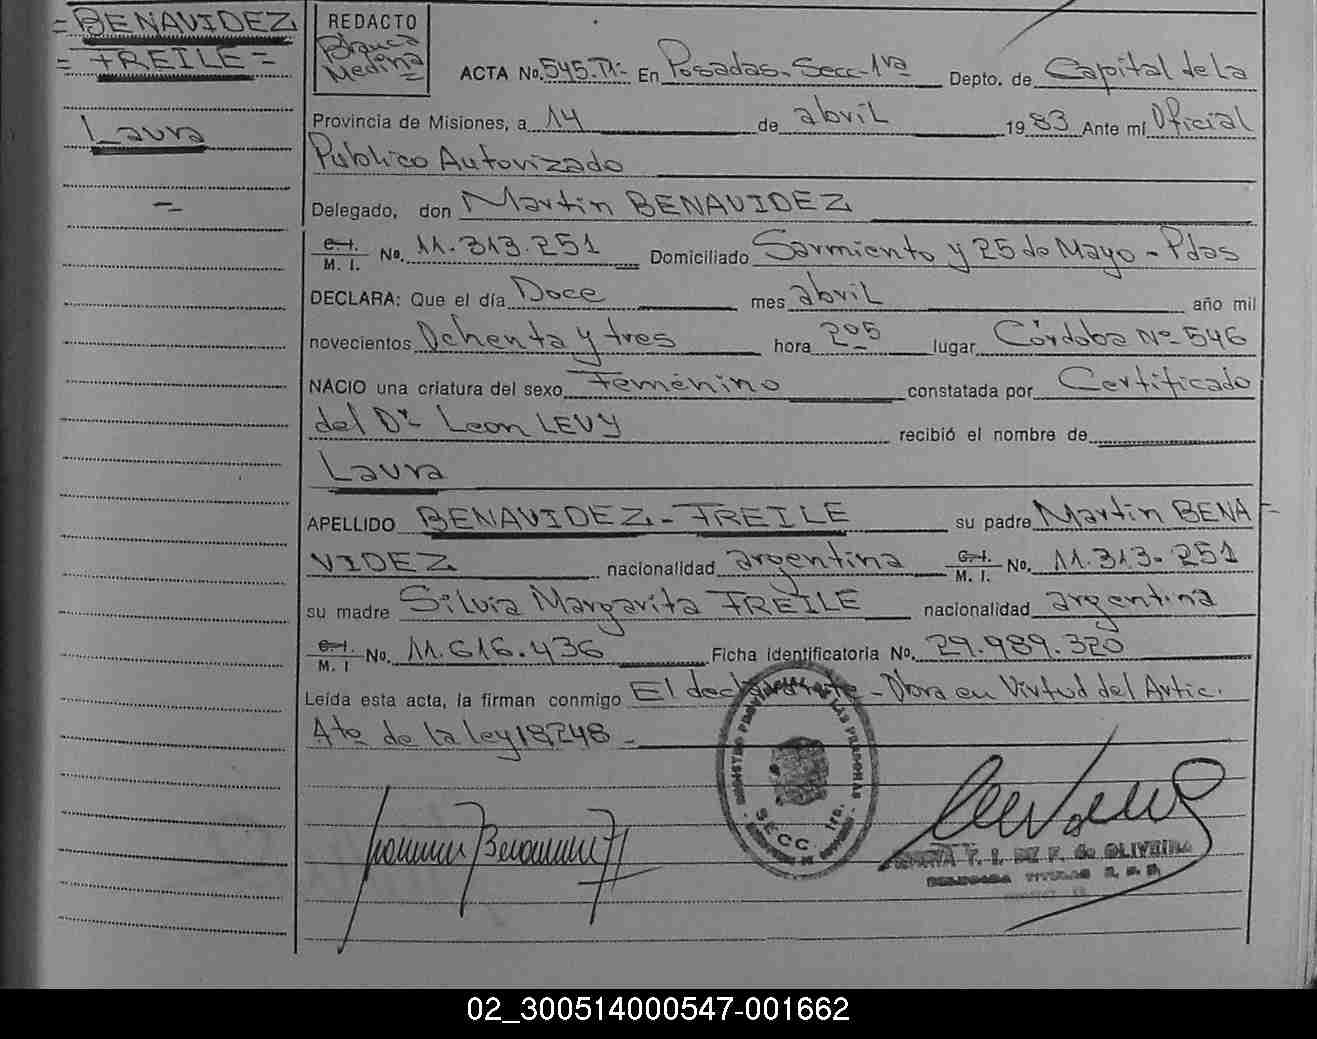 = BENAVIDEZ
= FREILE =
Laura
REDACTO
Blanca
Medina
ACTA No. 545-T1- En Posadas- Secc- 1ra Depto. de Capital de la
Provincia de Misiones, a 14 de abril 19 83 Ante mí Oficial
Publico Autorizado
Delegado, don Martin BENAVIDEZ
C. I.
M. I. No. 11.313.251 Domiciliado Sarmiento y 25 de Mayo - Pdas
DECLARA: Que el día Doce mes abril año mil
novecientos Ochenta y tres hora 2º5 lugar Córdoba Nº 546
NACIO una criatura del sexo Femenino constatada por Certificado
del Dr Leon LEVY recibió el nombre de
Laura
APELLIDO BENAVIDEZ - FREILE su padre Martin BENA-
VIDEZ nacionalidad argentina C. I. M. I. No. 11.313.251
su madre Silvia Margarita FREILE nacionalidad argentina
C. I. M. I No. 11.616.436 Ficha identificatoria No. 29.989.320
Leída esta acta, la firman conmigo El declarante - Nora en Virtud del Artic.
4to de la ley 18248 -
SECC. 1ra.
DE OLIVEIRA
02_300514000547-001662